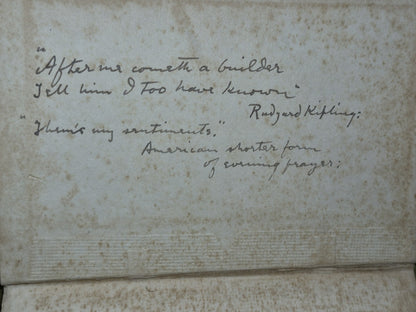 "After me cometh a builder
Tell him I too have known"
Rudyard Kipling:
"Them's my sentiments."
American shorter form
of evening prayer: